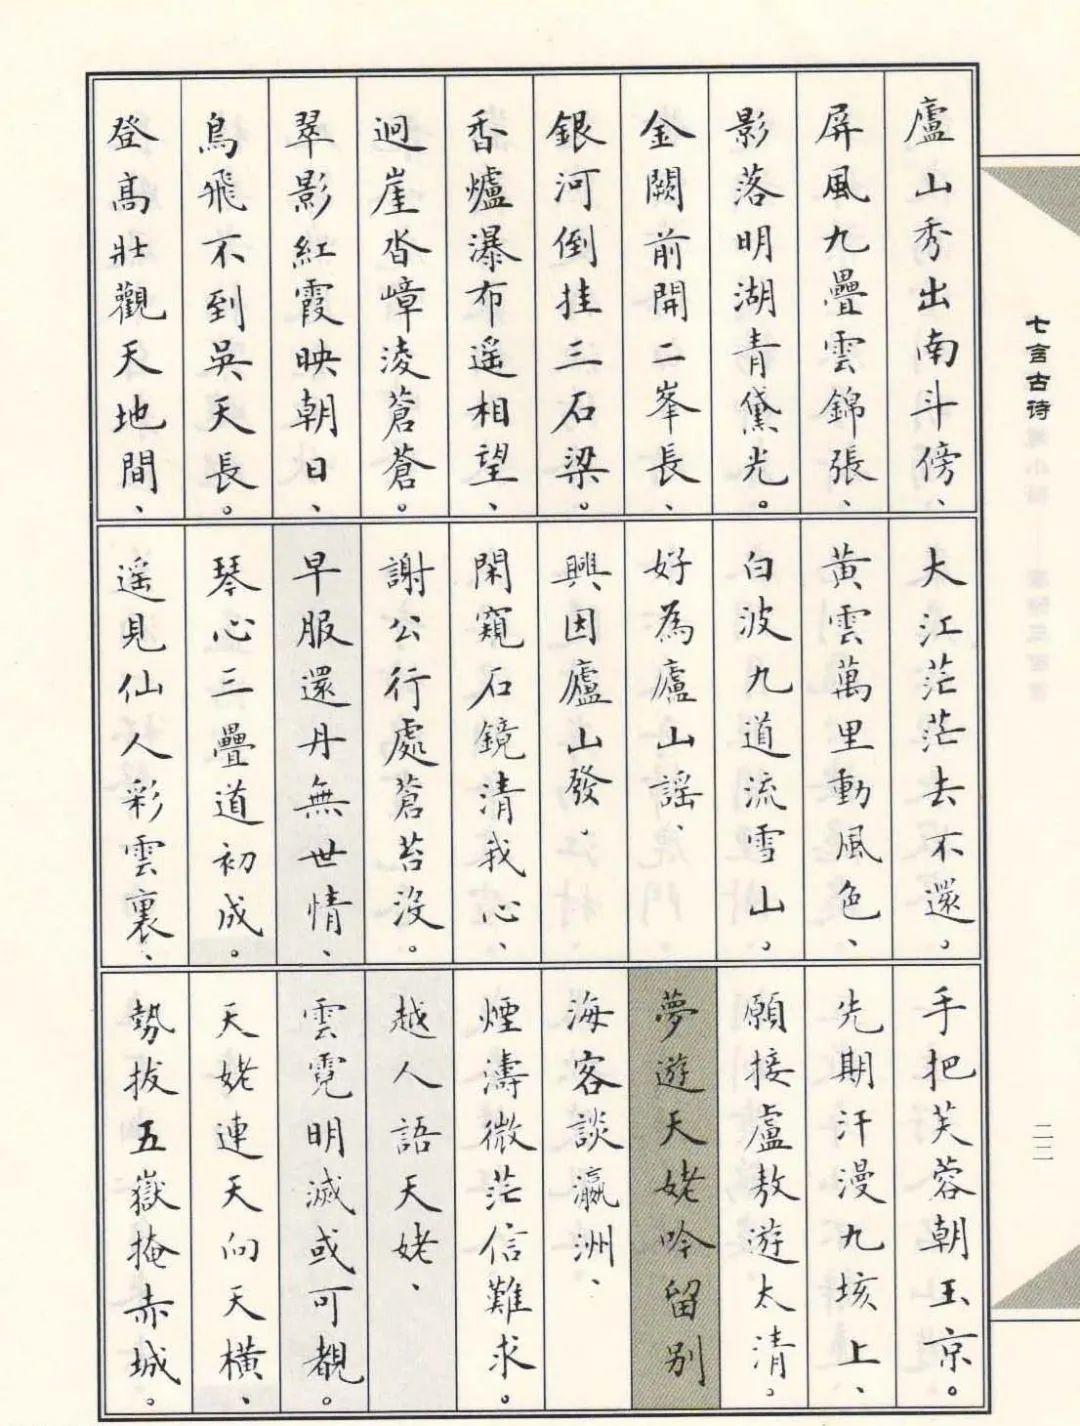 廬山秀出南斗傍、
屏風九疊雲錦張、
影落明湖青黛光。
金闕前開二峯長、
銀河倒挂三石梁。
香爐瀑布遥相望、
迴崖沓嶂淩蒼蒼。
翠影紅霞映朝日、
鳥飛不到吳天長。
登高壯觀天地間、
大江茫茫去不還。
黃雲萬里動風色、
白波九道流雪山。
好為廬山謠、
興因廬山發。
閑窺石鏡清我心、
謝公行處蒼苔沒。
早服還丹無世情、
琴心三疊道初成。
遥見仙人彩雲裏、
手把芙蓉朝玉京。
先期汗漫九垓上、
願接盧敖遊太清。
夢遊天姥吟留別
海客談瀛洲、
煙濤微茫信難求。
越人語天姥、
雲霓明滅或可覩。
天姥連天向天橫、
勢拔五嶽掩赤城。
七言古诗
二二